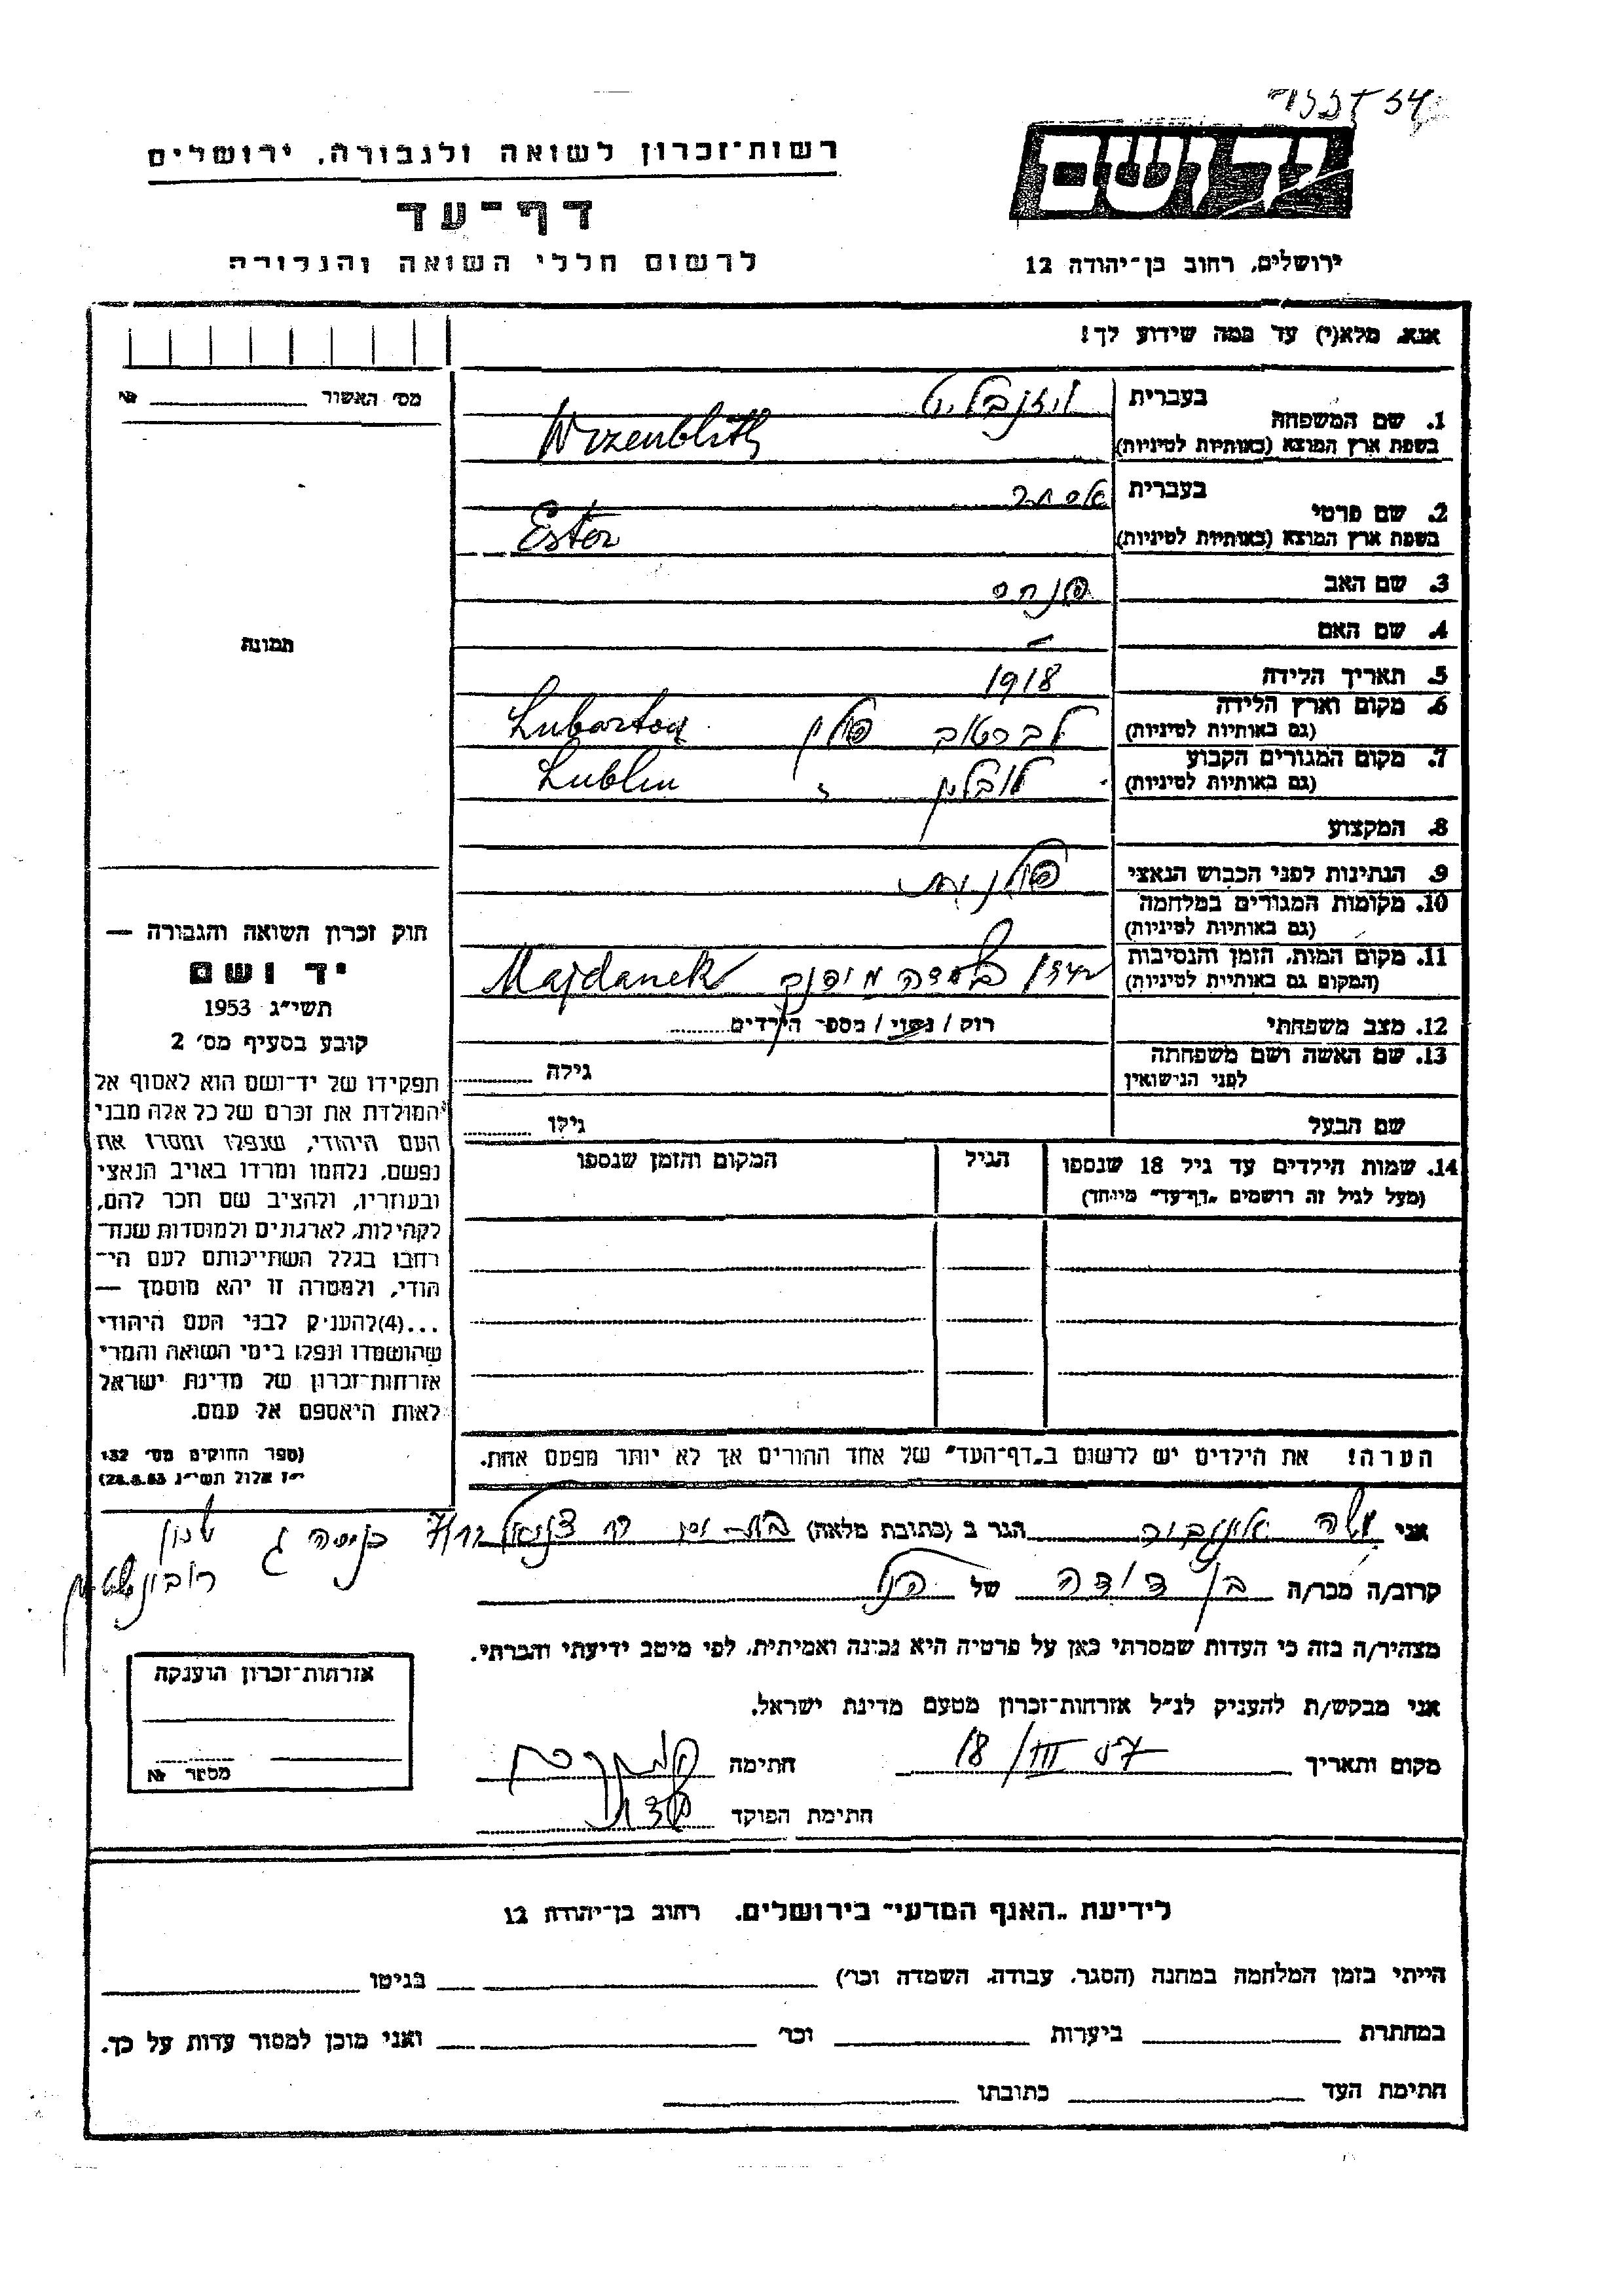 רשות־זכרון לשואה ולגבורה, ירושלים
דף־עד
לרשום חללי השואה והגבורה
יד ושם
ירושלים, רחוב בן־יהודה 12
אנא, מלא(י) עד כמה שידוע לך!
מס' האשור №
1. שם המשפחה
בעברית
בשפת ארץ המוצא (באותיות לטיניות)
2. שם פרטי
בעברית אסתר
בשפת ארץ המוצא (באותיות לטיניות) Ester
3. שם האב פנחס
4. שם האם –
5. תאריך הלידה 1918
6. מקום וארץ הלידה פולין
(גם באותיות לטיניות)
7. מקום המגורים הקבוע לובלין Lublin
(גם באותיות לטיניות)
8. המקצוע
9. הנתינות לפני הכבוש הנאצי פולנית
10. מקומות המגורים במלחמה
(גם באותיות לטיניות)
11. מקום המות, הזמן והנסיבות Majdanek
(המקום גם באותיות לטיניות)
12. מצב משפחתי רוק / נשוי / מספר הילדים
13. שם האשה ושם משפחתה גילה
לפני הנישואין
שם הבעל גילו
14. שמות הילדים עד גיל 18 שנספו הגיל המקום והזמן שנספו
(מעל לגיל זה רושמים „דף־עד" מיוחד)
הערה! את הילדים יש לרשום ב„דף־העד" של אחד ההורים אך לא יותר מפעם אחת.
תמונה
חוק זכרון השואה והגבורה —
יד ושם
תשי"ג 1953
קובע בסעיף מס' 2
תפקידו של יד־ושם הוא לאסוף אל
המולדת את זכרם של כל אלה מבני
העם היהודי, שנפלו ומסרו את
נפשם, נלחמו ומרדו באויב הנאצי
ובעוזריו, ולהציב שם וזכר להם,
לקהילות, לארגונים ולמוסדות שנח־
רבו בגלל השתייכותם לעם הי־
הודי, ולמטרה זו יהא מוסמך —
...(4)להעניק לבני העם היהודי
שהושמדו ונפלו בימי השואה והמרי
אזרחות־זכרון של מדינת ישראל
לאות היאספם אל עמם.
(ספר החוקים מס' 132
י"ז אלול תשי"ג 28.8.53)
אני משה הגר ב (כתובת מלאה) כניסה ג שכון
קרוב/ה מכר/ה בן דודה של הנ"ל
מצהיר/ה בזה כי העדות שמסרתי כאן על פרטיה היא נכונה ואמיתית, לפי מיטב ידיעתי והכרתי.
אני מבקש/ת להעניק לנ"ל אזרחות־זכרון מטעם מדינת ישראל.
מקום ותאריך 18/III 57 חתימה
חתימת הפוקד
אזרחות־זכרון הוענקה
מספר №
לידיעת „האגף המדעי" בירושלים, רחוב בן־יהודה 12
הייתי בזמן המלחמה במחנה (הסגר, עבודה, השמדה וכר') בגיטו
במחתרת ביערות וכר' ואני מוכן למסור עדות על כך.
חתימת העד כתובתו